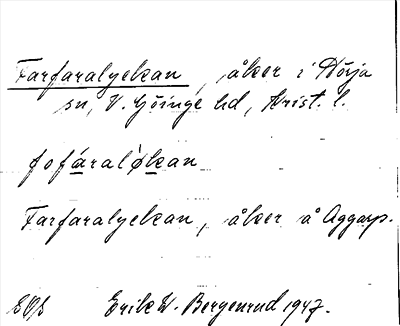 Farfaralyckan, åker i Hörja
sn, V. Göinge hd, Krist. l.
fofáraløkan
Farfaralyckan, åker å Aggarp.
Erik W. Bergenrud 1947.